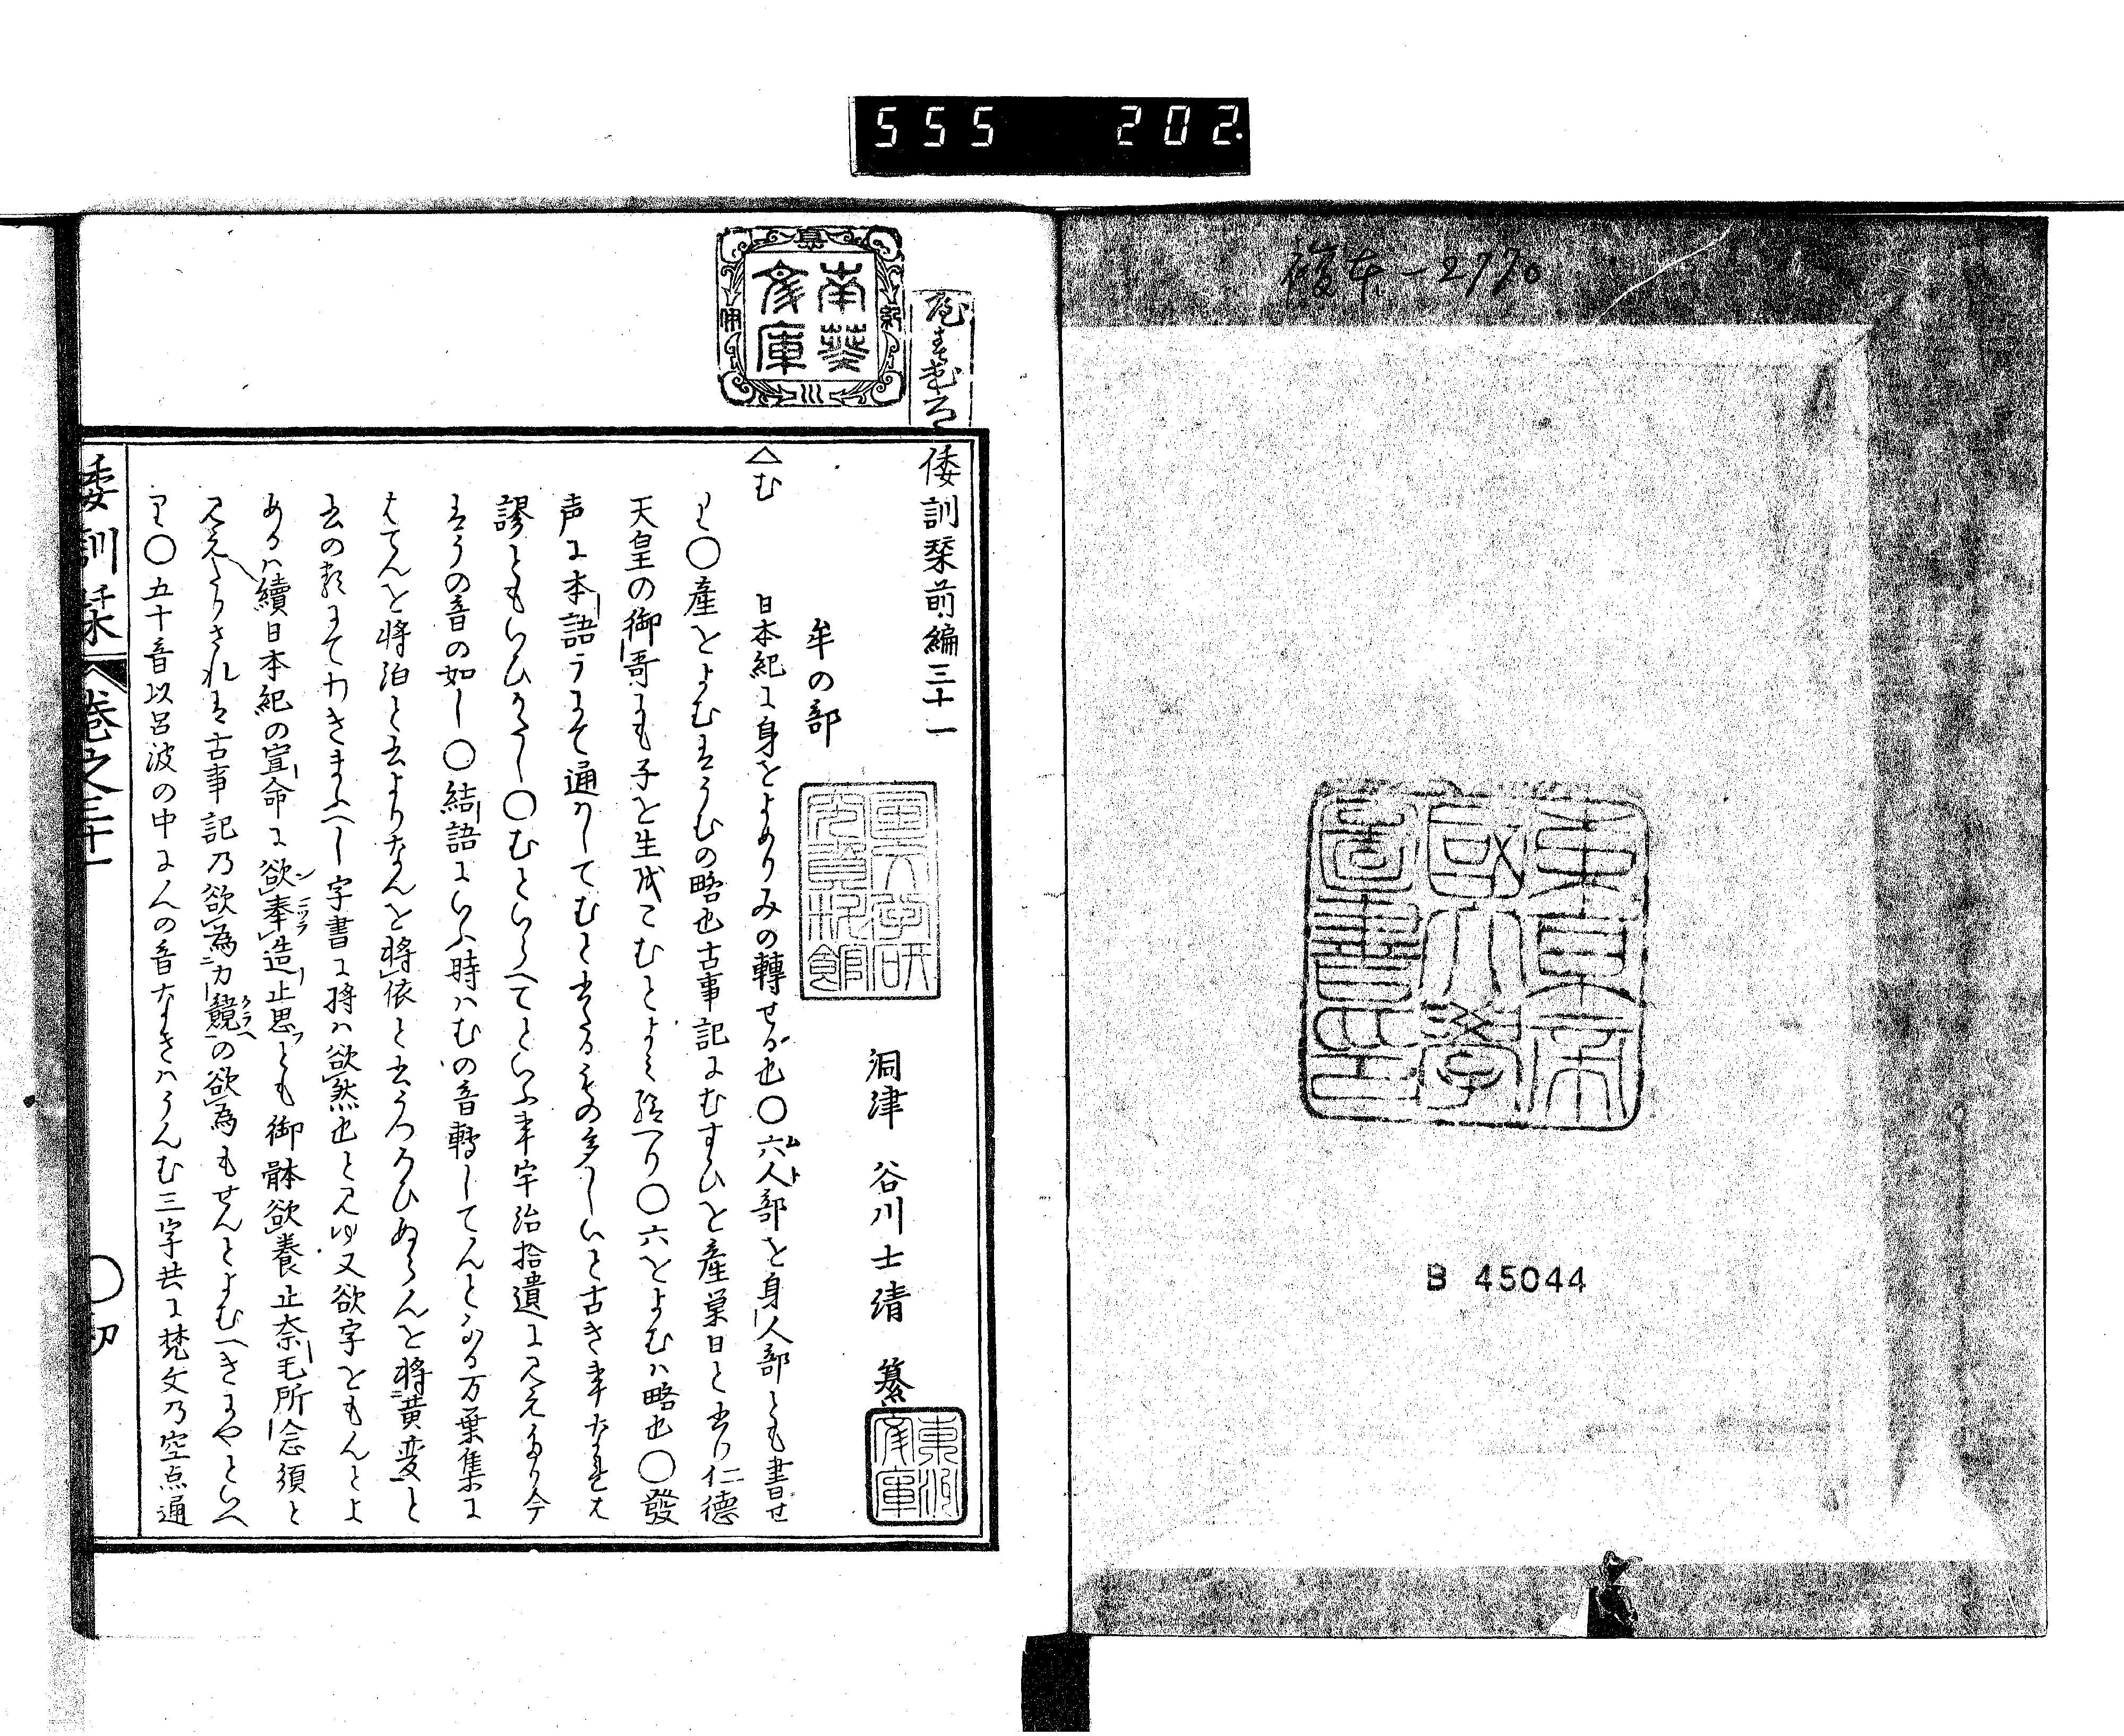 555 202.
複本-2770
東京帝国大学図書印
B 45044
南葵文庫
倭訓栞前編三十一
洞津 谷川士清 纂
牟の部
△む 日本紀に身をよめりみの轉せる也〇六人部を身人部とも書せ
り〇産をよむはうむの略也古事記にむすひを産巣日と書り仁德
天皇の御哥にも子を生はこむとよみ給へり〇六をよむは略也〇發
声に本語うにて通かしてむと書るもの多しいと古き事なれは
謬ともいひかたし〇むといらへてといふ事宇治拾遺に見えたり今
はうの音の如し〇結語にいふ時はむの音轉してんとなる万葉集に
はてんを将泊と書よりなんを将依と書うつろひぬらんを将黄変と
書の類にてわきまふへし字書に将は欲然也と見ゆ又欲字をもんとよ
あるは續日本紀の宣命に欲奉造止思とも御躰欲養止奈毛所念須と
見えたりされは古事記乃欲為力競の欲為もせんとよむへきにやといへ
り〇五十音以呂波の中にんの音なきはうんむ三字共に梵文乃空点通
倭訓栞 巻之三十一 〇初